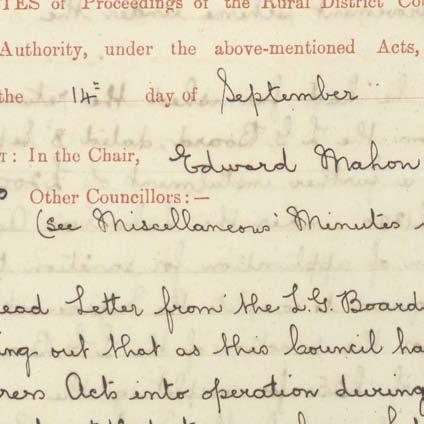 TES of Proceedings of the Rural District Cou
Authority, under the above-mentioned Acts,
the 14th day of September
T: In the Chair, Edward Mahon
Other Councillors:—
(see Miscellaneous Minutes
ead Letter from the L.G. Board
ing out that as this Council ha
rers Acts into operation during